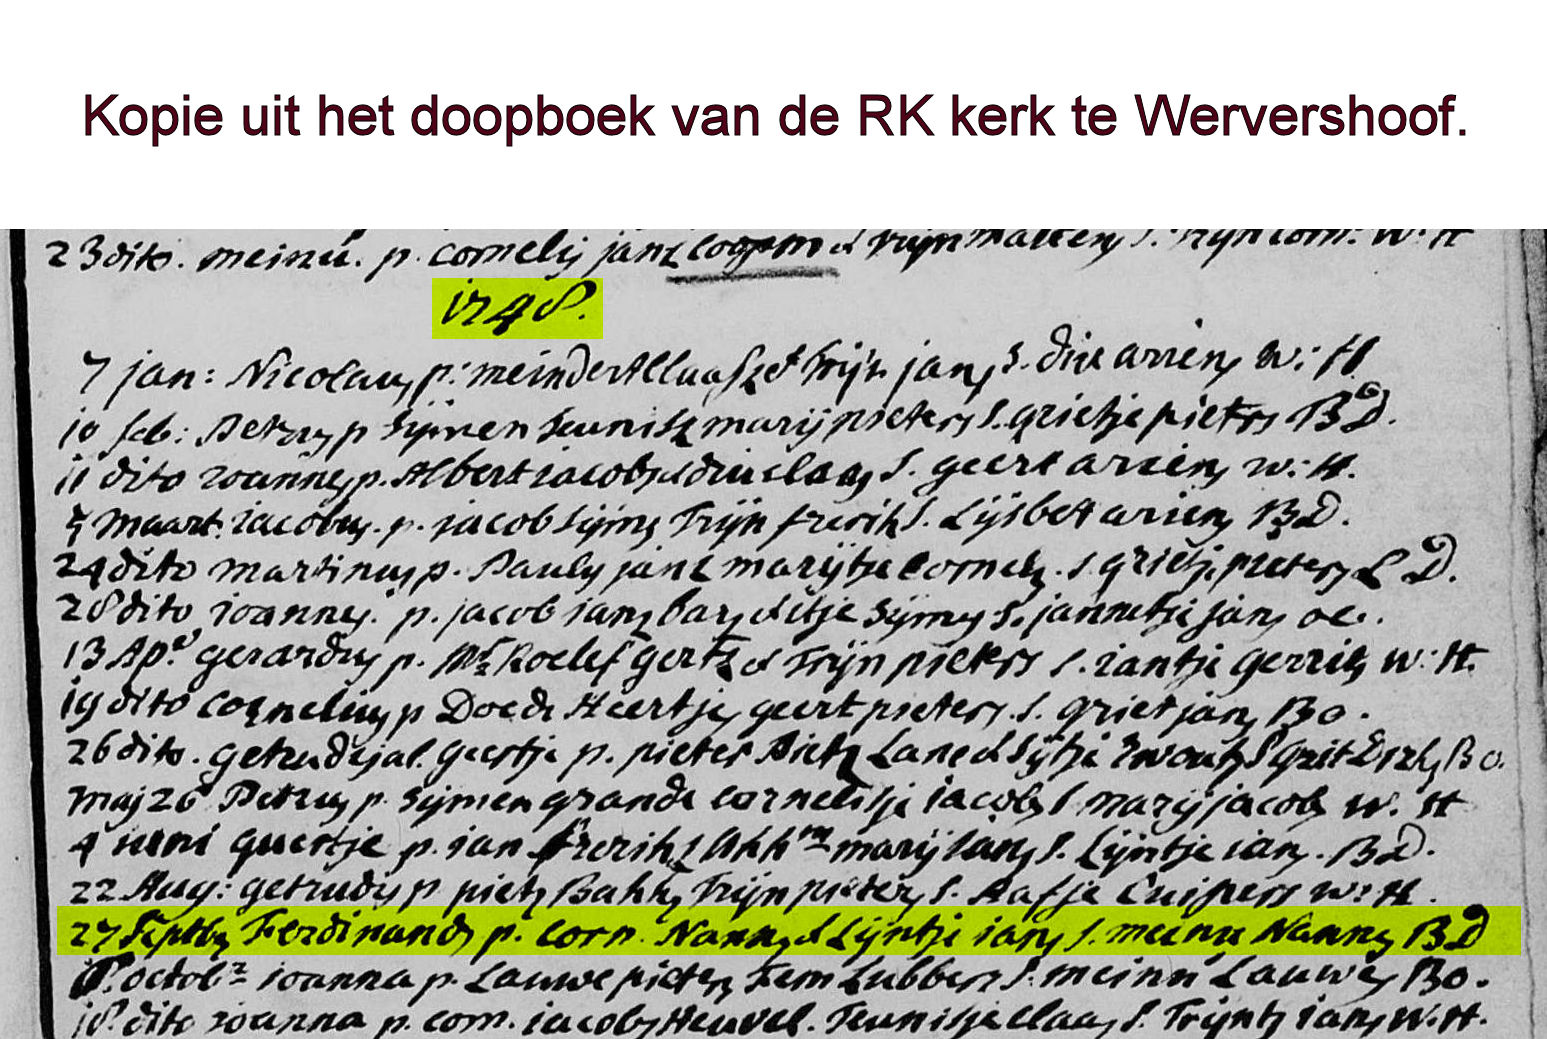 Kopie uit het doopboek van de RK kerk te Wervershoof.
23 dito. meinu. p. cornelis janz coopm & trijn s. trijn corn: W: H
1748.
7 jan: Nicolaus p: meindert Claasz & trijn jans s. dirk ariens W: H
10 feb: Petrus p sijmen teunisz marij pieters s. grietje pieters BD.
11 dito ioannes p. Albert iacobs & claas s. geert ariens W: H.
maart. iacobus. p. jacob sijms Trijn frerik s. Lijsbet ariens BD.
24 dito martinus p. Paulus janz marijtje Cornelz. s grietje pieters L D.
28 dito ioannes. p. jacob ians bars & itje Sijms s. jannetje jans oc.
13 Ap: gerardus p. Mr Roelef gertz & Trijn pieters s. iantje gerrits W: H.
19 dito cornelius p Doede Heertjes geert pieters. s. griet jans Bo.
26 dito. getrudis jal. geertje p. pieter Pietz Lane & Sijtje Ewouts s grit Bo.
maj 26 Petrus p. Sijmen grande cornelisje iacobs s marij jacobs W. H
4 iuni guertje p. ian frerikz marij ians s. Lijntje ians. BD.
22 Aug: getrudis p pietz Bakk Trijn pieters s. Aafje Cuipers W: H.
27 Septbr Ferdinands p. corn. Nanns & Lijntje ians s. meinu Nanns BD
octobr ioanna p. Lauwe pieters Fem Lubbers s. meinu Lauwes Bo.
18 dito ioanna p. corn. iacobs Heuvel. Teunisje claas s. Trijntj ians W. H.